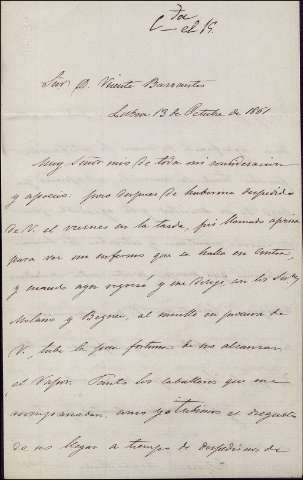 Sor D. Vicente Barrantes
Lisboa 13 de Octubre de 1861
Muy Señor mio de toda mi consideracion
y aprecio: poco despues de haberme despedido
de V. el viernes en la tarde, fui llamado aprisa
para ver un enfermo que se halla en Cintra,
y cuando ayer regresé y me dirigí, en los Sres
Molano y al muelle en procura de
V. tube la poca fortuna de no alcanzar
el Vapor. Tanto los caballeros que me
acompañaban, como yo tubimos el disgusto
de no llegar a tiempo de despedirnos de